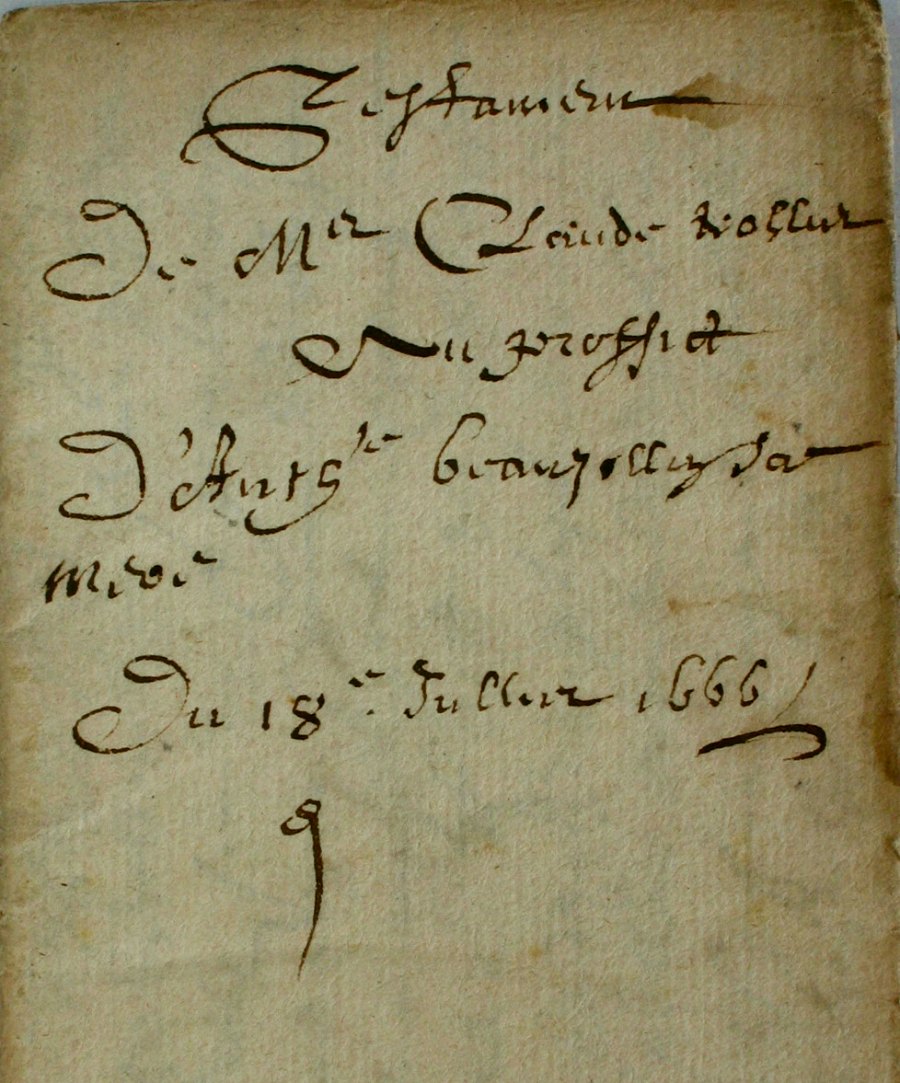 Testament
De Mer Claude trollier
Au proffict
D'Anthe beaujollin sa
mere
Du 18e Juillier 1666